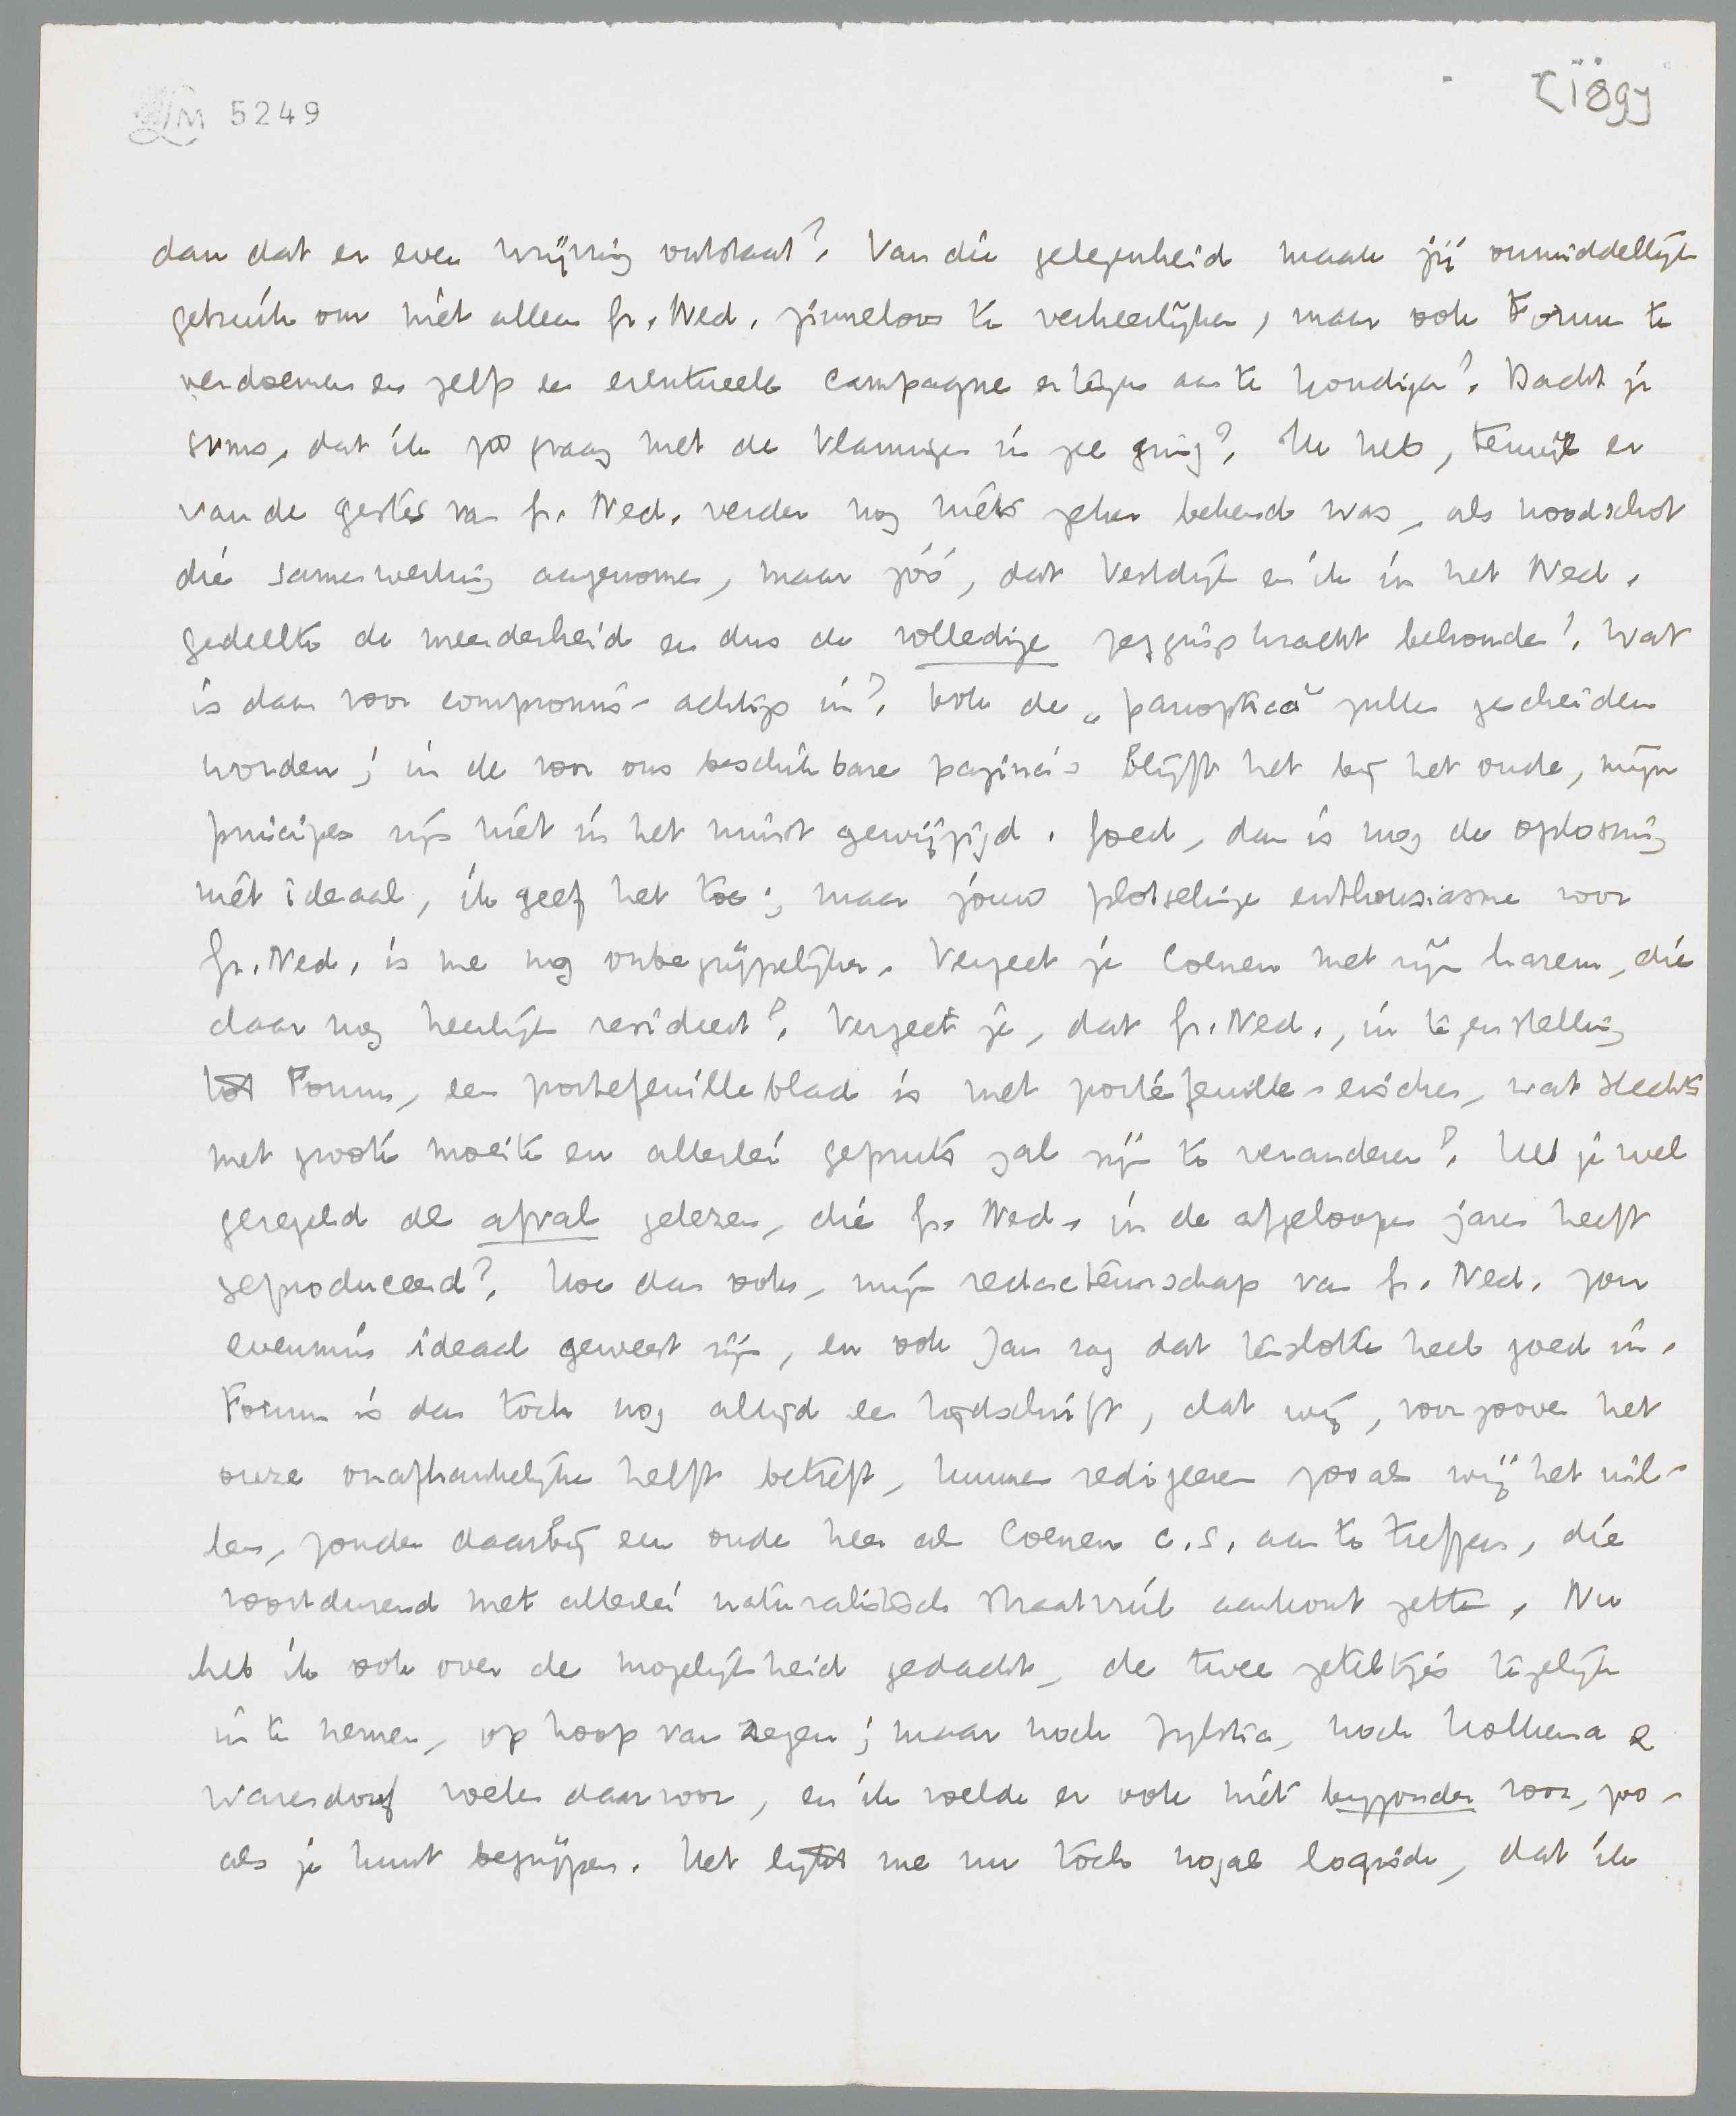 LM 5249
[189]
dan dat er even wrijving ontstaat? Van die gelegenheid maak jij onmiddellijk
gebruik om niet alleen Gr. Ned. zinneloos te verheerlijken, maar ook Forum te
verdoemen en zelfs een eventueele campagne ertegen aan te kondigen? Dacht je
soms, dat ik zoo graag met de Vlamingen in zee ging? Ik heb, terwijl er
van de gestes van Gr. Ned. verder nog niets zeker bekend was, als noodschot
die samenwerking aangenomen, maar zóó, dat Vestdijk en ik in het Ned.
gedeelte de meerderheid en dus de volledige zeggingskracht behouden! Wat
is daar voor compromis-achtigs in? Ook de „panoptica" zullen gescheiden
worden; in de voor ons beschikbare pagina's blijft het bij het oude, mijn
principes zijn niet in het minst gewijzigd. Goed, dan is nog de oplossing
niet ideaal, ik geef het toe; maar jouw plotselinge enthousiasme voor
Gr. Ned. is me nog onbegrijpelijker. Vergeet je Coenen met zijn harem, die
daar nog heerlijk resideert? Vergeet je, dat Gr. Ned., in tegenstelling
tot Forum, een portefeuilleblad is met portefeuille-eischen, wat slechts
met groote moeite en allerlei gepruts zal zijn te veranderen? Heb je wel
geregeld de afval gelezen, die Gr. Ned. in de afgeloopen jaren heeft
geproduceerd? Hoe dan ook, mijn redacteurschap van Gr. Ned. zou
evenmin ideaal geweest zijn, en ook Jan zag dat tenslotte heel goed in.
Forum is dan toch nog altijd een tijdschrift, dat wij, voor zoover het
onze onafhankelijke helft betreft, kunnen redigeeren zooals wij het wil-
len, zonder daarbij een oude heer als Coenen c.s. aan te treffen, die
voortdurend met allerlei naturalistisch straatvuil aankomt zetten. Nu
heb ik ook over de mogelijkheid gedacht, de twee zeteltjes tegelijk
in te nemen, op hoop van zegen; maar noch Zijlstra, noch Holkema &
Warendorf voelen daarvoor, en ik voelde er ook niet bijzonder voor, zoo-
als je kunt begrijpen. Het lijkt me nu toch nogal logisch, dat ik